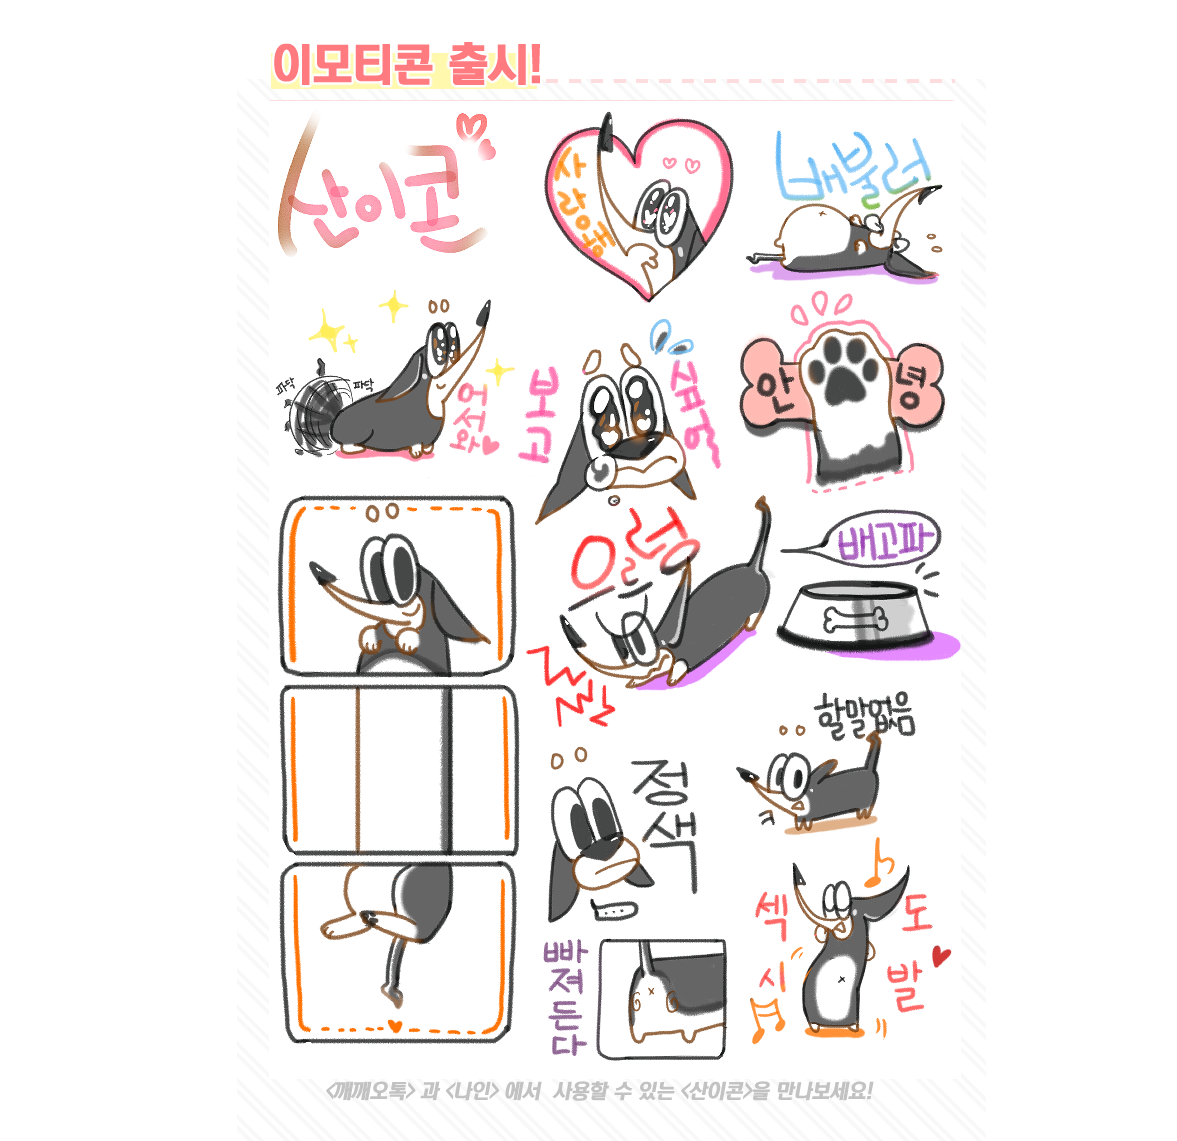 이모티콘 출시!
산이콘
사
랑
웅
배불러
파닥
파닥
어
서
와
보
고
싶
어
안
녕
으르렁
왈
왈
배고파
할말없음
ㅋ
정
색
....
빠
져
든
다
섹
시
도
발
<깨깨오톡> 과 <나인> 에서 사용할 수 있는 <산이콘>을 만나보세요!